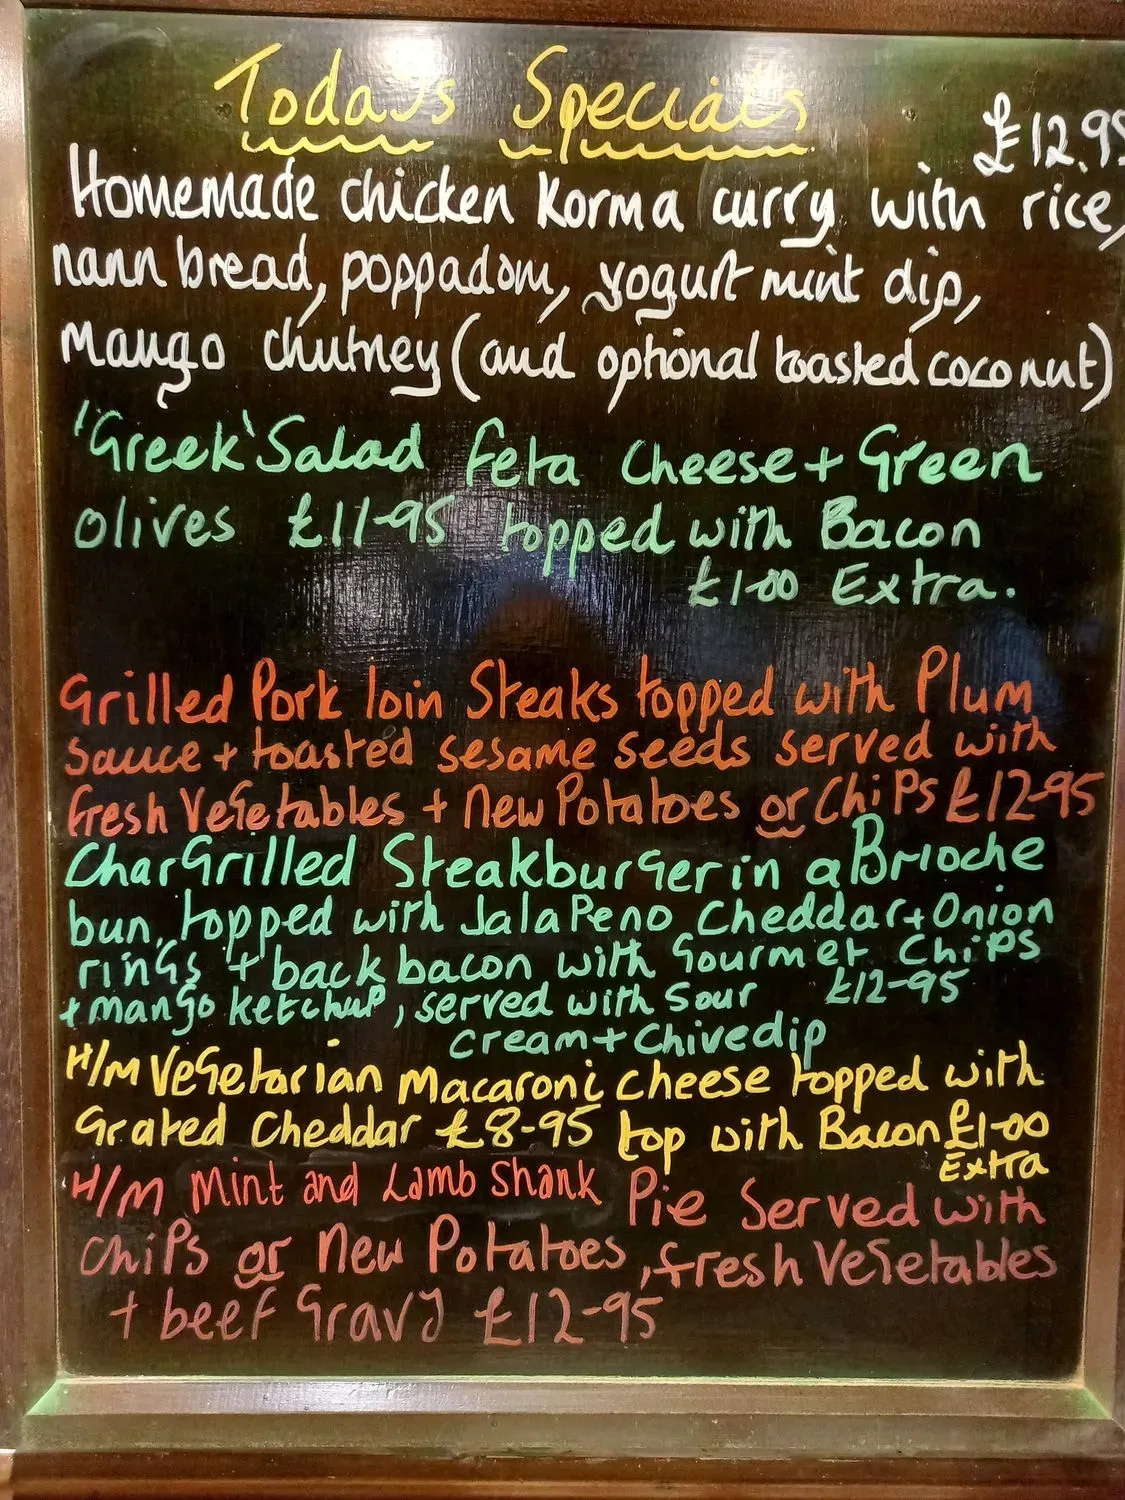 Today's Specials
£12.95
Homemade chicken Korma curry with rice,
nann bread, poppadom, yogurt mint dip,
Mango chutney (and optional toasted coconut)
'Greek' Salad feta Cheese + Green
olives £11-95 topped with Bacon
£1-00 Extra.
Grilled Pork loin Steaks topped with Plum
Sauce + toasted sesame seeds served with
fresh Vegetables + New Potatoes or Chips £12-95
CharGrilled Steakburger in a Brioche
bun, topped with Jalapeno Cheddar + Onion
rings + back bacon with Gourmet Chips
+ mango ketchup, served with Sour £12-95
cream + Chive dip
H/M Vegetarian Macaroni cheese topped with
Grated Cheddar £8-95 top with Bacon £1-00
Extra
H/M Mint and Lamb Shank Pie Served with
Chips or New Potatoes, fresh Vegetables
+ beef Gravy £12-95